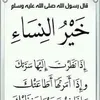 قال رسول الله صلى الله عليه وسلم
خَيْرُ النِّسَاءِ
إِذَا نَظَرْتَ إِلَيْهَا سَرَّتْكَ
وَإِذَا أَمَرْتَهَا أَطَاعَتْكَ